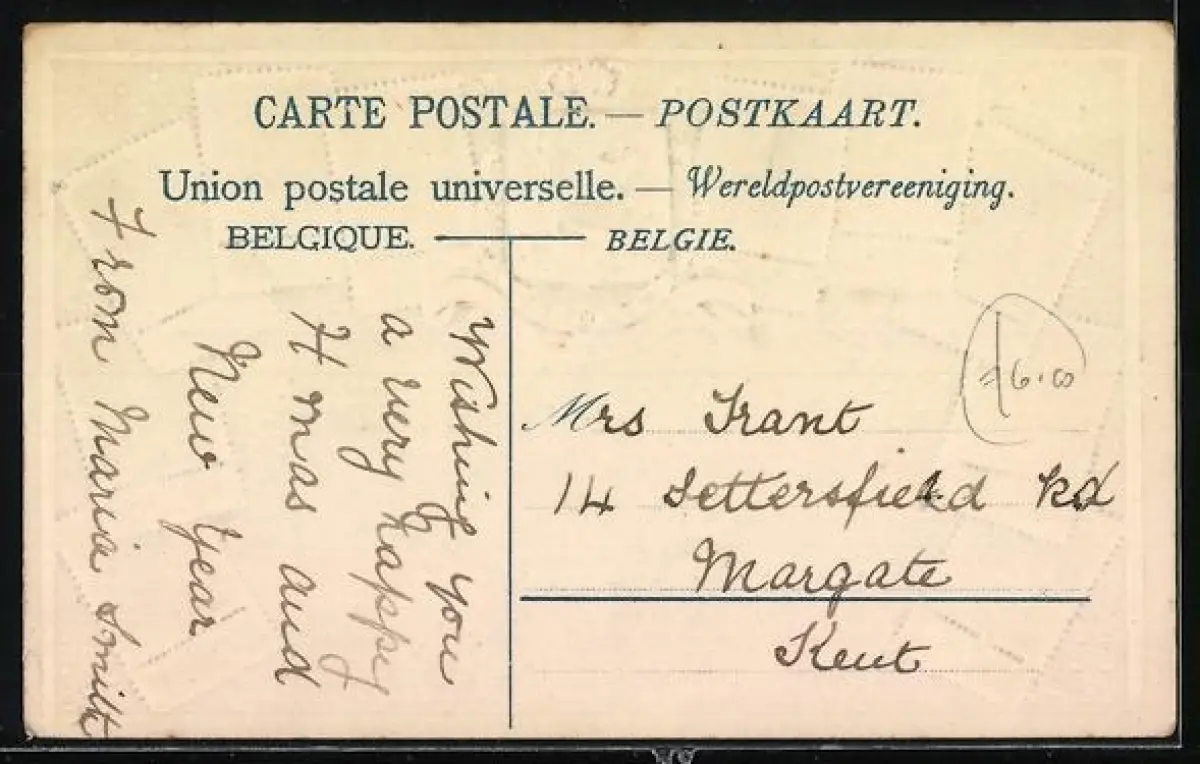 CARTE POSTALE. — POSTKAART.
Union postale universelle. — Wereldpostvereeniging.
BELGIQUE. — BELGIE.
Wishing you
a very happy
X mas and
New Year
From Maria Smith
Mrs Trant
14 Settersfield Rd
Margate
Kent